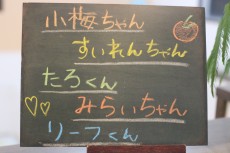 小梅ちゃん
すいれんちゃん
たろくん
みらいちゃん
リーフくん